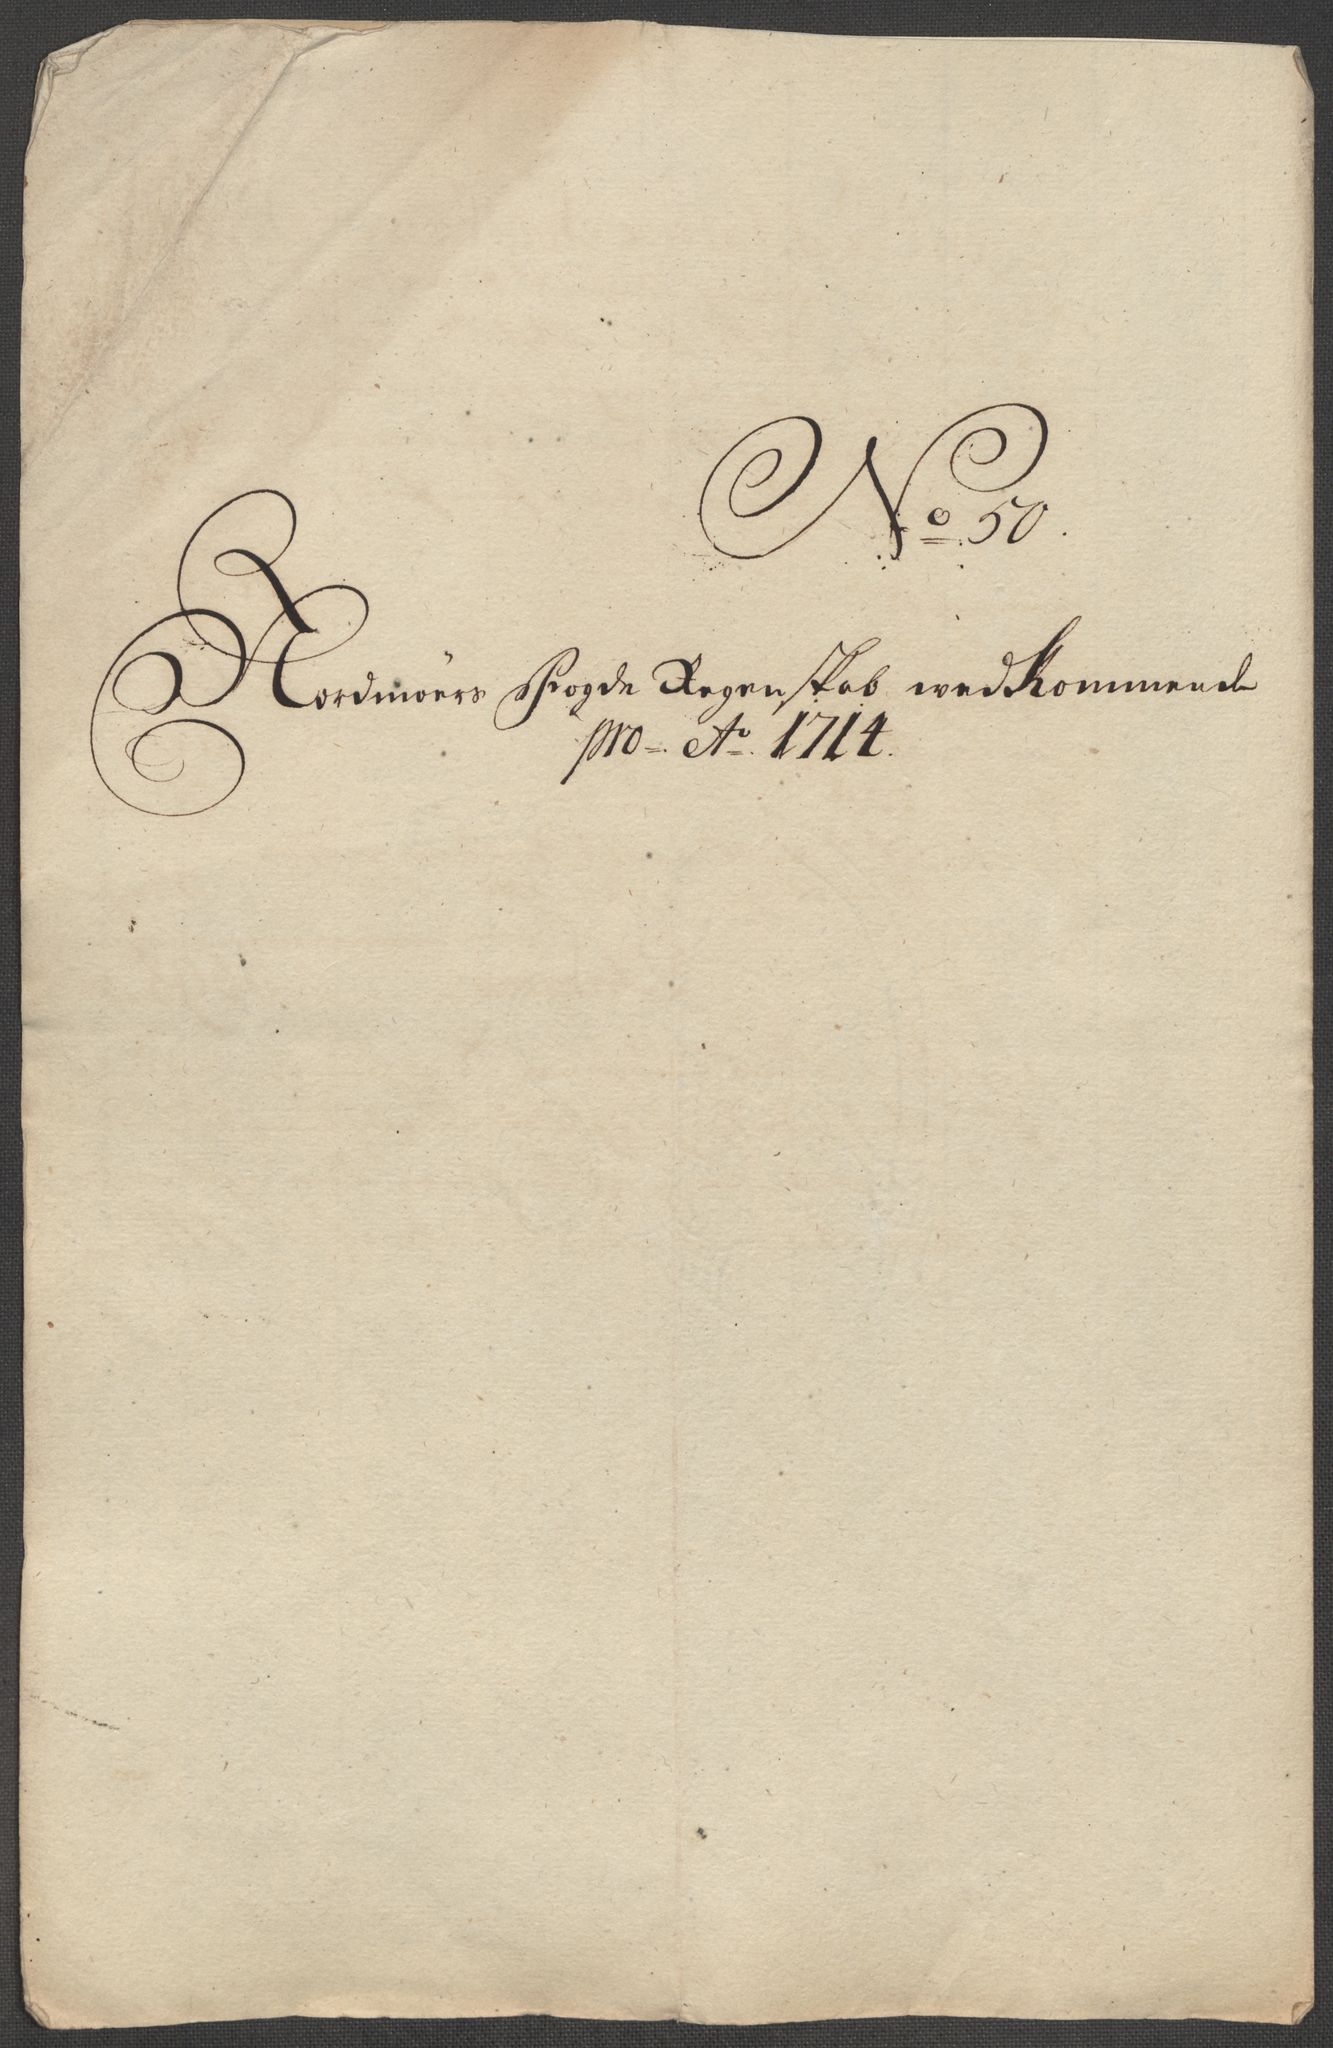 No 50.
Nordmøers Fogde Regenskab wedkommende
pro. Ao. 1714.